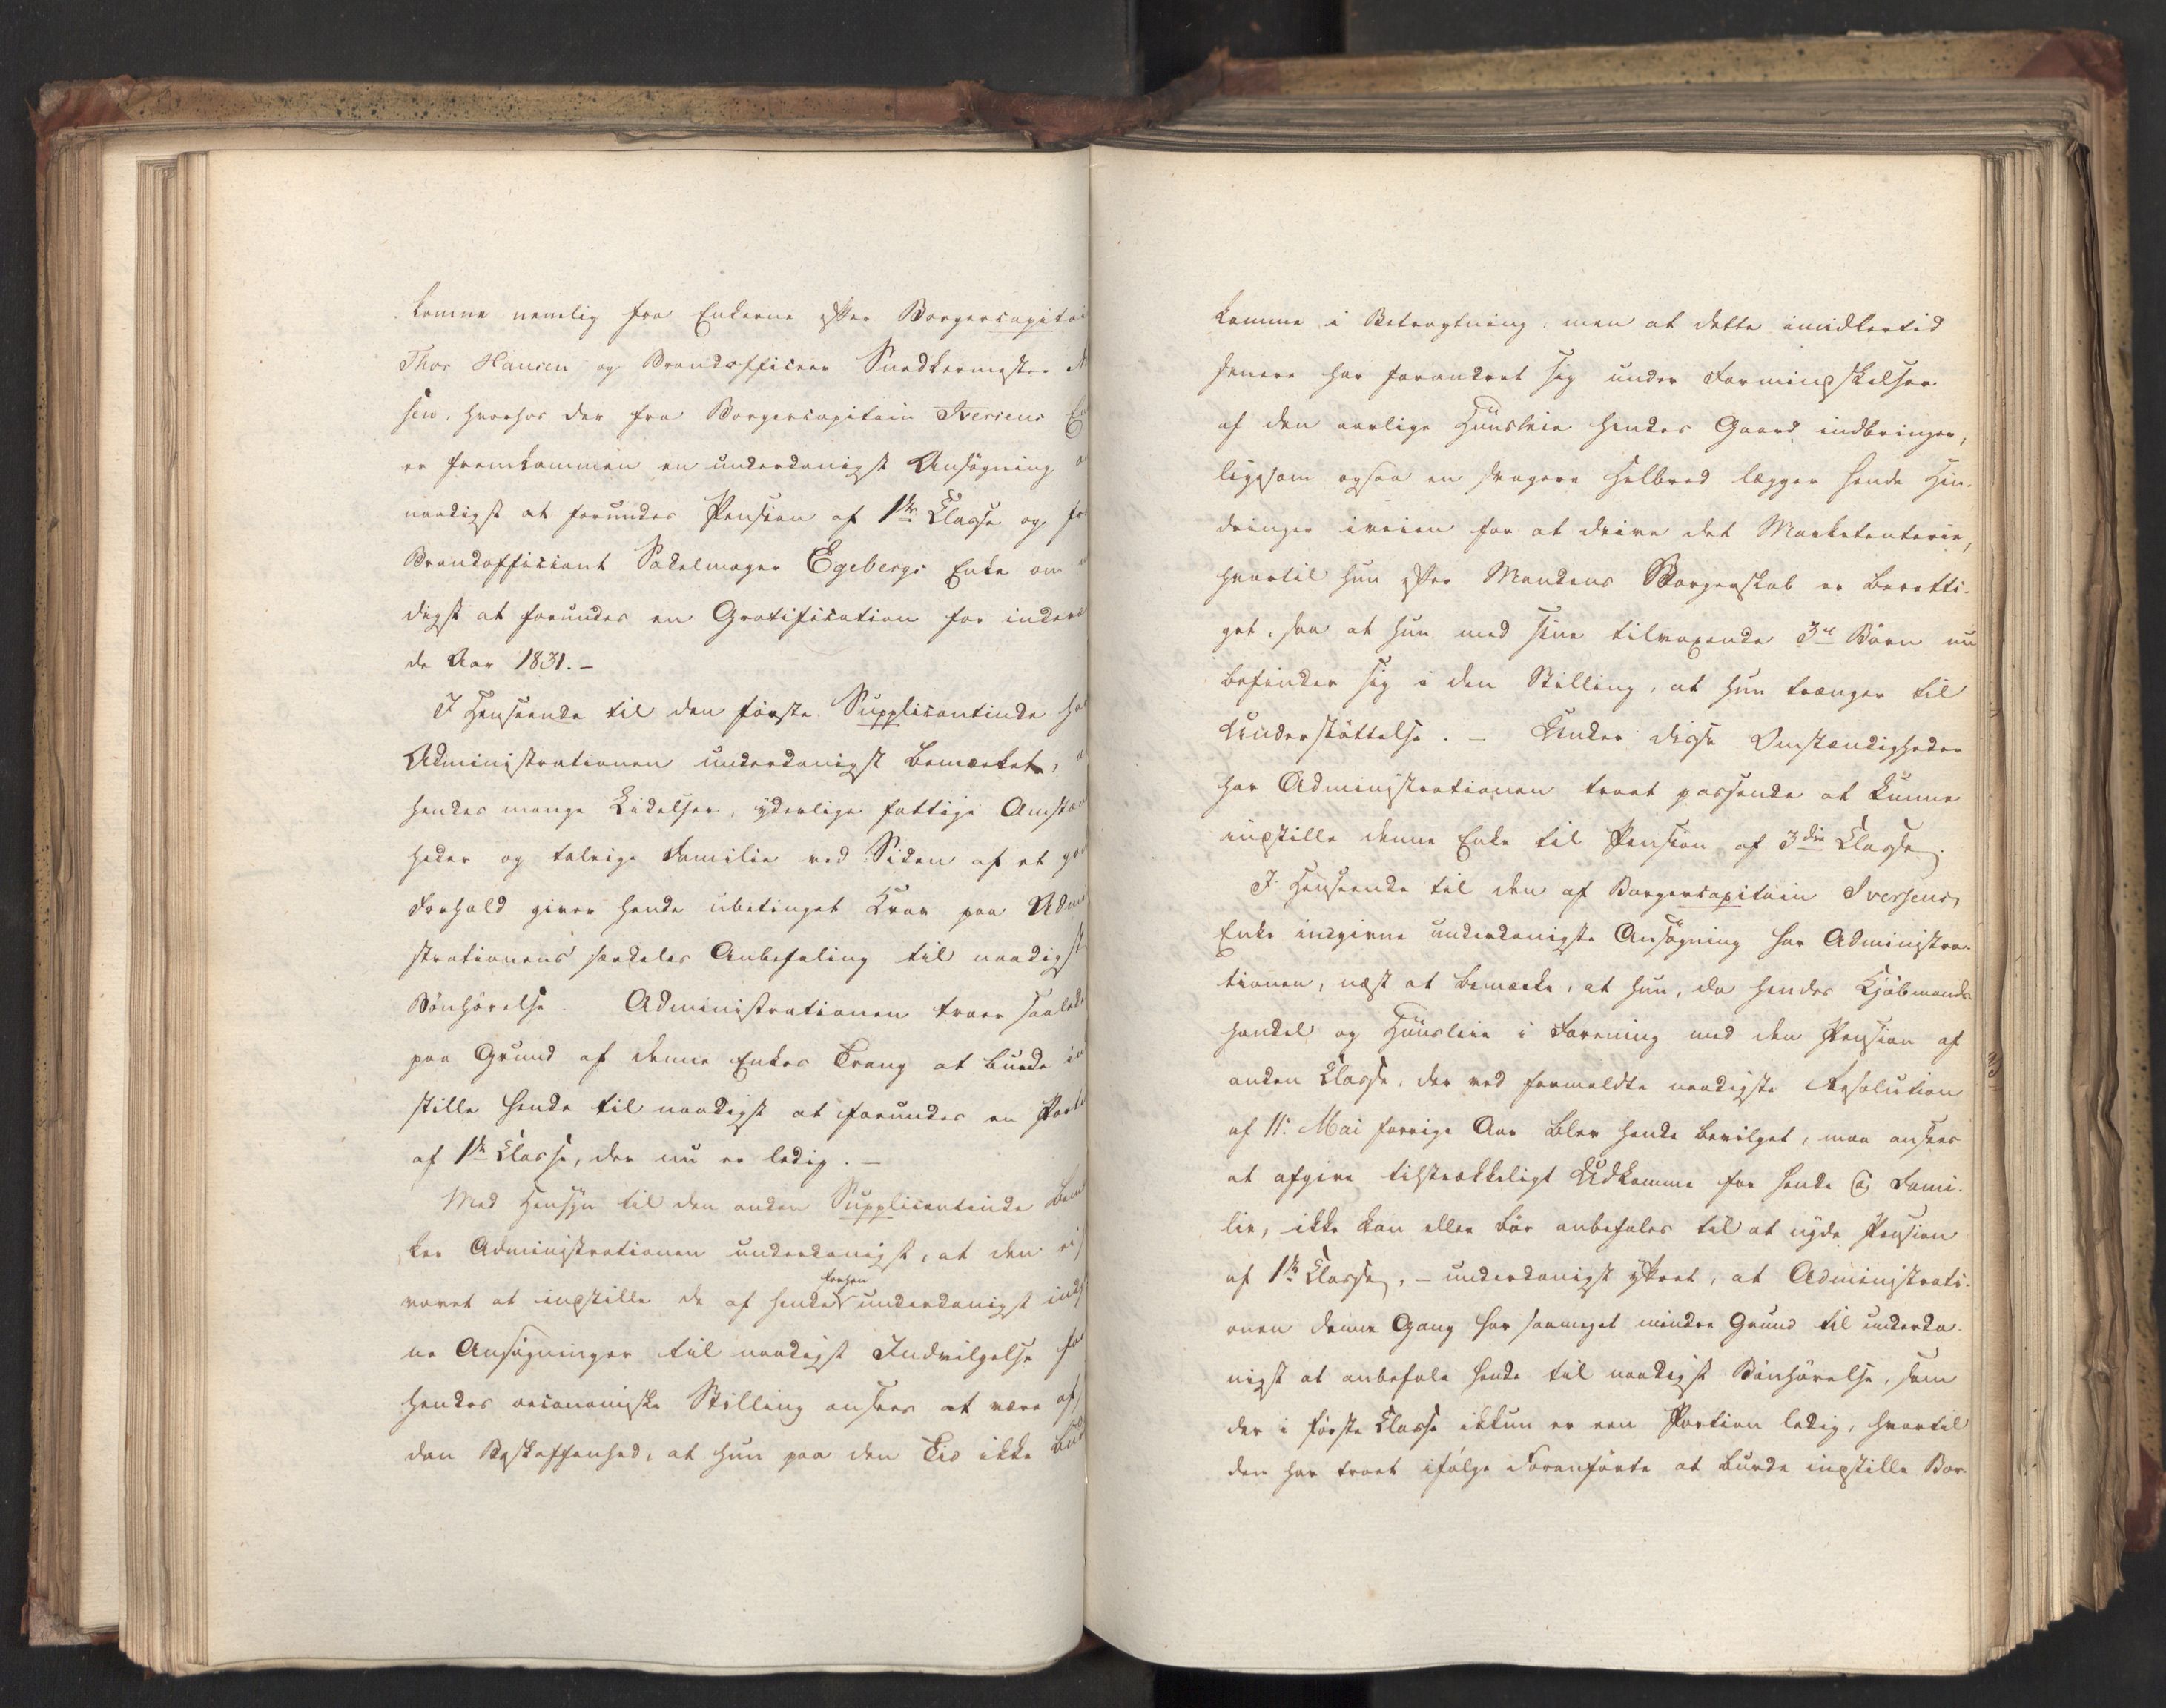 komne nemlig fra Enkerne efter Borgercapitai
Thor Hansen og Brandofficeer Snedkermester A
sen, hvorhos der fra Borgercapitain Iversens En
er fremkommen en underdanigst Ansøgning o
naadigst at forundes Pension af 1ste Classe og fr
Brandofficiant Sadelmager Egebergs Enke om
digst at forundes en Gratification for indevæ
de Aar 1831.-
I Henseende til den første Supplicantinde ha
Administrationen underdanigst bemærket, a
hendes mange Lidelser, yderlige fattige Omstæn
heder og talrige Familie ved Siden af et go
Forhold giver hende ubetinget Krav paa Admi
strationens særdeles Anbefaling til naadigst
Bønhørelse. Administrationen troer saalede
paa Grund af denne Enkes Trang at burde in
stille hende til naadigst at forundes en Porti
af 1ste Classe, der nu er ledig.-
Med Hensyn til den anden Supplicantinde bemær
ker Administrationen underdanigst, at den ei
vovet at indstille de af hende forhen underdanigst indg
ne Ansøgninger til naadigst Indvilgelse for
hendes oeconomiske Stilling ansees at være af
den Beskaffenhed, at hun paa den Tid ikke bur
komme i Betragtning, men at dette imidlertid
senere har forandret sig under Formindskelsen
af den aarlige Huusleie hendes Gaard indbringer,
ligesom ogsaa en svagere Helbred lægger hende Hin-
dringer iveien for at drive det Marketenterie,
hvortil hun efter Mandens Borgerskab er beretti-
get, saa at hun med sine tilvoxende 3de Børn nu
befinder sig i den Stilling, at hun trænger til
Understøttelse. - Under disse Omstændigheder
har Administrationen troet passende at kunne
indstille denne Enke til Pension af 3die Classe.
I Henseende til den af Borgercapitain Iversens
Enke indgivne underdanigste Ansøgning har Administra-
tionen, næst at bemærke, at hun, da hendes Kjøbmands
handel og Huusleie i Forening med den Pension af
anden Classe, der ved formeldte naadigste Resolution
af 11. Mai forrige Aar blev hende bevilget, maa ansees
at afgive tilstrækkeligt Udkomme for hende og Fami-
lie, ikke kan eller bør anbefales til at nyde Pension
af 1ste Classe, - underdanigst yttret, at Administrati-
onen denne Gang har saameget mindre Grund til underda-
nigst at anbefale hende til naadigst Bønhørelse, som
der i første Classe ikkun er een Portion ledig, hvortil
den har troet ifølge Foranførte at burde indstille Bor-